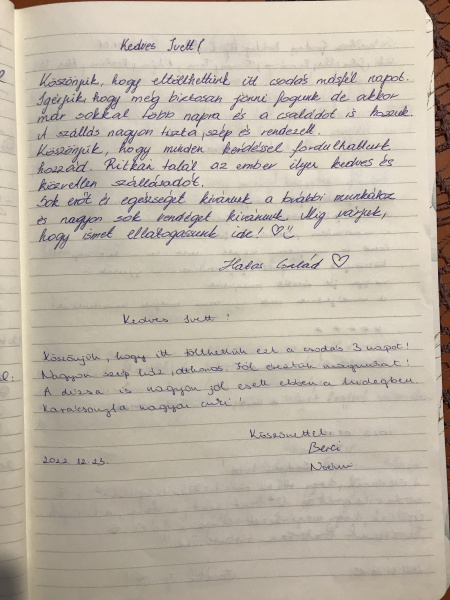 Kedves Ivett!
Köszönjük, hogy eltölthettünk itt csodás másfél napot.
Igérjük, hogy még biztosan jönni fogunk de akkor
már sokkal több napra és a családot is hozzuk.
A szállás nagyon tiszta, szép és rendezett.
Köszönjük, hogy minden kérdéssel fordulhattunk
hozzád. Ritkán talál az ember ilyen kedves és
közvetlen szállásadót.
Sok erőt és egészséget kívánunk a további munkához
és nagyon sok vendéget kívánunk. Alig várjuk,
hogy ismét ellátogassunk ide!
Halas Család
Kedves Ivett!
Köszönjük, hogy itt tölthettük ezt a csodás 3 napot!
Nagyon szép ház, otthonos. Jól éreztük magunkat!
A dézsa is nagyon jól esett ebben a hidegben
Karácsonyfa nagyon cuki!
Köszönettel:
Berci
Noémi
2022.12.23.